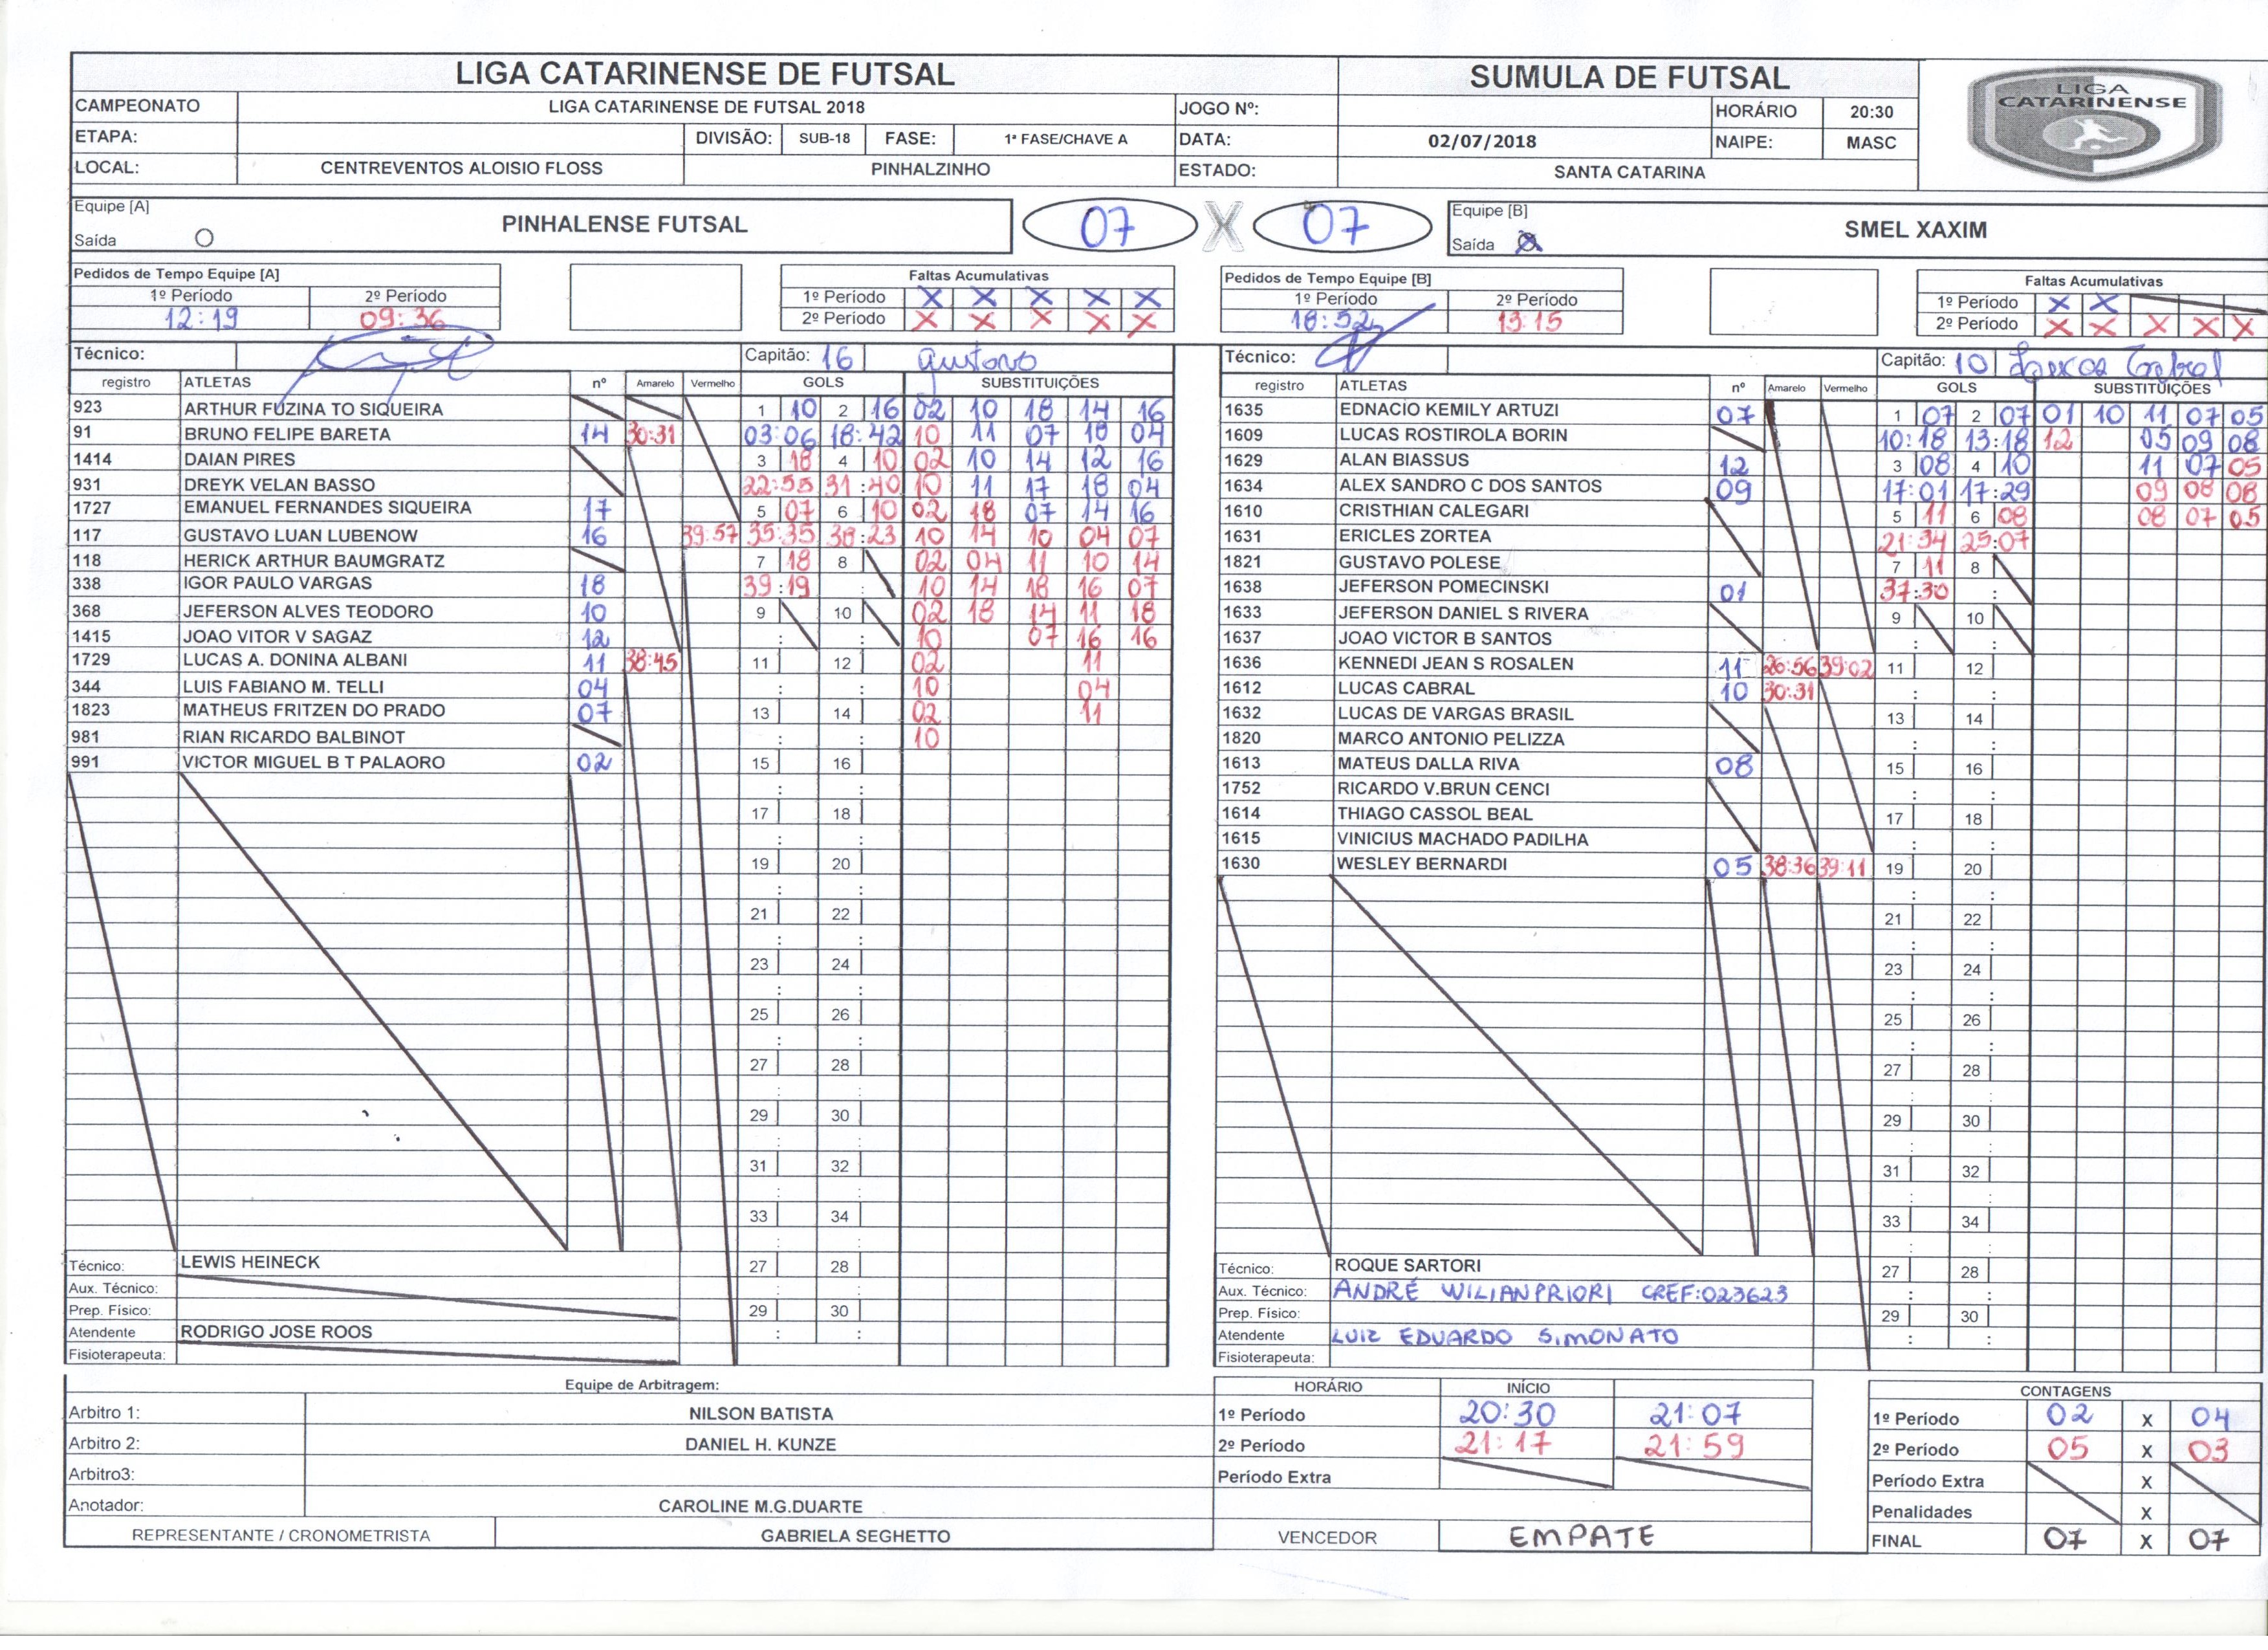 LIGA CATARINENSE DE FUTSAL SUMULA DE FUTSAL
LIGA CATARINENSE
CAMPEONATO LIGA CATARINENSE DE FUTSAL 2018 JOGO Nº: HORÁRIO 20:30
ETAPA: DIVISÃO: SUB-18 FASE: 1ª FASE/CHAVE A DATA: 02/07/2018 NAIPE: MASC
LOCAL: CENTREVENTOS ALOISIO FLOSS PINHALZINHO ESTADO: SANTA CATARINA
Equipe [A] PINHALENSE FUTSAL 07 X 07 Equipe [B] SMEL XAXIM
Saída O Saída
Pedidos de Tempo Equipe [A] Faltas Acumulativas
1º Período 2º Período 1º Período X X X X X
12:19 09:36 2º Período X X X X X
Pedidos de Tempo Equipe [B] Faltas Acumulativas
1º Período 2º Período 1º Período X X
18:52 13:15 2º Período X X X X X
Técnico: Capitão: 16 Gustavo
registro ATLETAS nº Amarelo Vermelho GOLS SUBSTITUIÇÕES
923 ARTHUR FUZINA TO SIQUEIRA 1 10 2 16 02 10 18 14 16
91 BRUNO FELIPE BARETA 14 30:31 03:06 18:42 10 11 07 10 04
1414 DAIAN PIRES 3 18 4 10 02 10 14 12 16
931 DREYK VELAN BASSO 22:55 31:40 10 11 17 18 04
1727 EMANUEL FERNANDES SIQUEIRA 17 5 07 6 10 02 18 07 14 16
117 GUSTAVO LUAN LUBENOW 16 39:57 35:35 38:23 10 14 10 04 07
118 HERICK ARTHUR BAUMGRATZ 7 18 8 02 04 11 10 14
338 IGOR PAULO VARGAS 18 39:19 10 14 18 16 07
368 JEFERSON ALVES TEODORO 10 9 10 02 18 14 11 18
1415 JOAO VITOR V SAGAZ 12 : : 10 07 16 16
1729 LUCAS A. DONINA ALBANI 11 38:45 11 12 02 11
344 LUIS FABIANO M. TELLI 04 : : 10 04
1823 MATHEUS FRITZEN DO PRADO 07 13 14 02 11
981 RIAN RICARDO BALBINOT : : 10
991 VICTOR MIGUEL B T PALAORO 02 15 16
: :
17 18
: :
19 20
: :
21 22
: :
23 24
: :
25 26
: :
27 28
: :
29 30
: :
31 32
: :
33 34
: :
Técnico: LEWIS HEINECK 27 28
Aux. Técnico: : :
Prep. Físico: 29 30
Atendente RODRIGO JOSE ROOS : :
Fisioterapeuta:
Técnico: Capitão: 10 Lucas Cabral
registro ATLETAS nº Amarelo Vermelho GOLS SUBSTITUIÇÕES
1635 EDNACIO KEMILY ARTUZI 07 1 07 2 07 01 10 11 07 05
1609 LUCAS ROSTIROLA BORIN 10:18 13:18 12 05 09 08
1629 ALAN BIASSUS 12 3 08 4 10 11 07 05
1634 ALEX SANDRO C DOS SANTOS 09 17:01 17:29 09 08 08
1610 CRISTHIAN CALEGARI 5 11 6 08 08 07 05
1631 ERICLES ZORTEA 21:34 25:07
1821 GUSTAVO POLESE 7 11 8
1638 JEFERSON POMECINSKI 01 37:30 :
1633 JEFERSON DANIEL S RIVERA 9 10
1637 JOAO VICTOR B SANTOS : :
1636 KENNEDI JEAN S ROSALEN 11 26:56 39:02 11 12
1612 LUCAS CABRAL 10 30:31 : :
1632 LUCAS DE VARGAS BRASIL 13 14
1820 MARCO ANTONIO PELIZZA : :
1613 MATEUS DALLA RIVA 08 15 16
1752 RICARDO V.BRUN CENCI : :
1614 THIAGO CASSOL BEAL 17 18
1615 VINICIUS MACHADO PADILHA : :
1630 WESLEY BERNARDI 05 38:36 39:11 19 20
: :
21 22
: :
23 24
: :
25 26
: :
27 28
: :
29 30
: :
31 32
: :
33 34
: :
Técnico: ROQUE SARTORI 27 28
Aux. Técnico: ANDRÉ WILIAN PRIORI CREF:023623 : :
Prep. Físico: 29 30
Atendente LUIZ EDUARDO SIMONATO : :
Fisioterapeuta:
Equipe de Arbitragem:
Arbitro 1: NILSON BATISTA
Arbitro 2: DANIEL H. KUNZE
Arbitro3:
Anotador: CAROLINE M.G.DUARTE
REPRESENTANTE / CRONOMETRISTA GABRIELA SEGHETTO
HORÁRIO INÍCIO
1º Período 20:30 21:07
2º Período 21:17 21:59
Período Extra
VENCEDOR EMPATE
CONTAGENS
1º Período 02 X 04
2º Período 05 X 03
Período Extra X
Penalidades X
FINAL 07 X 07